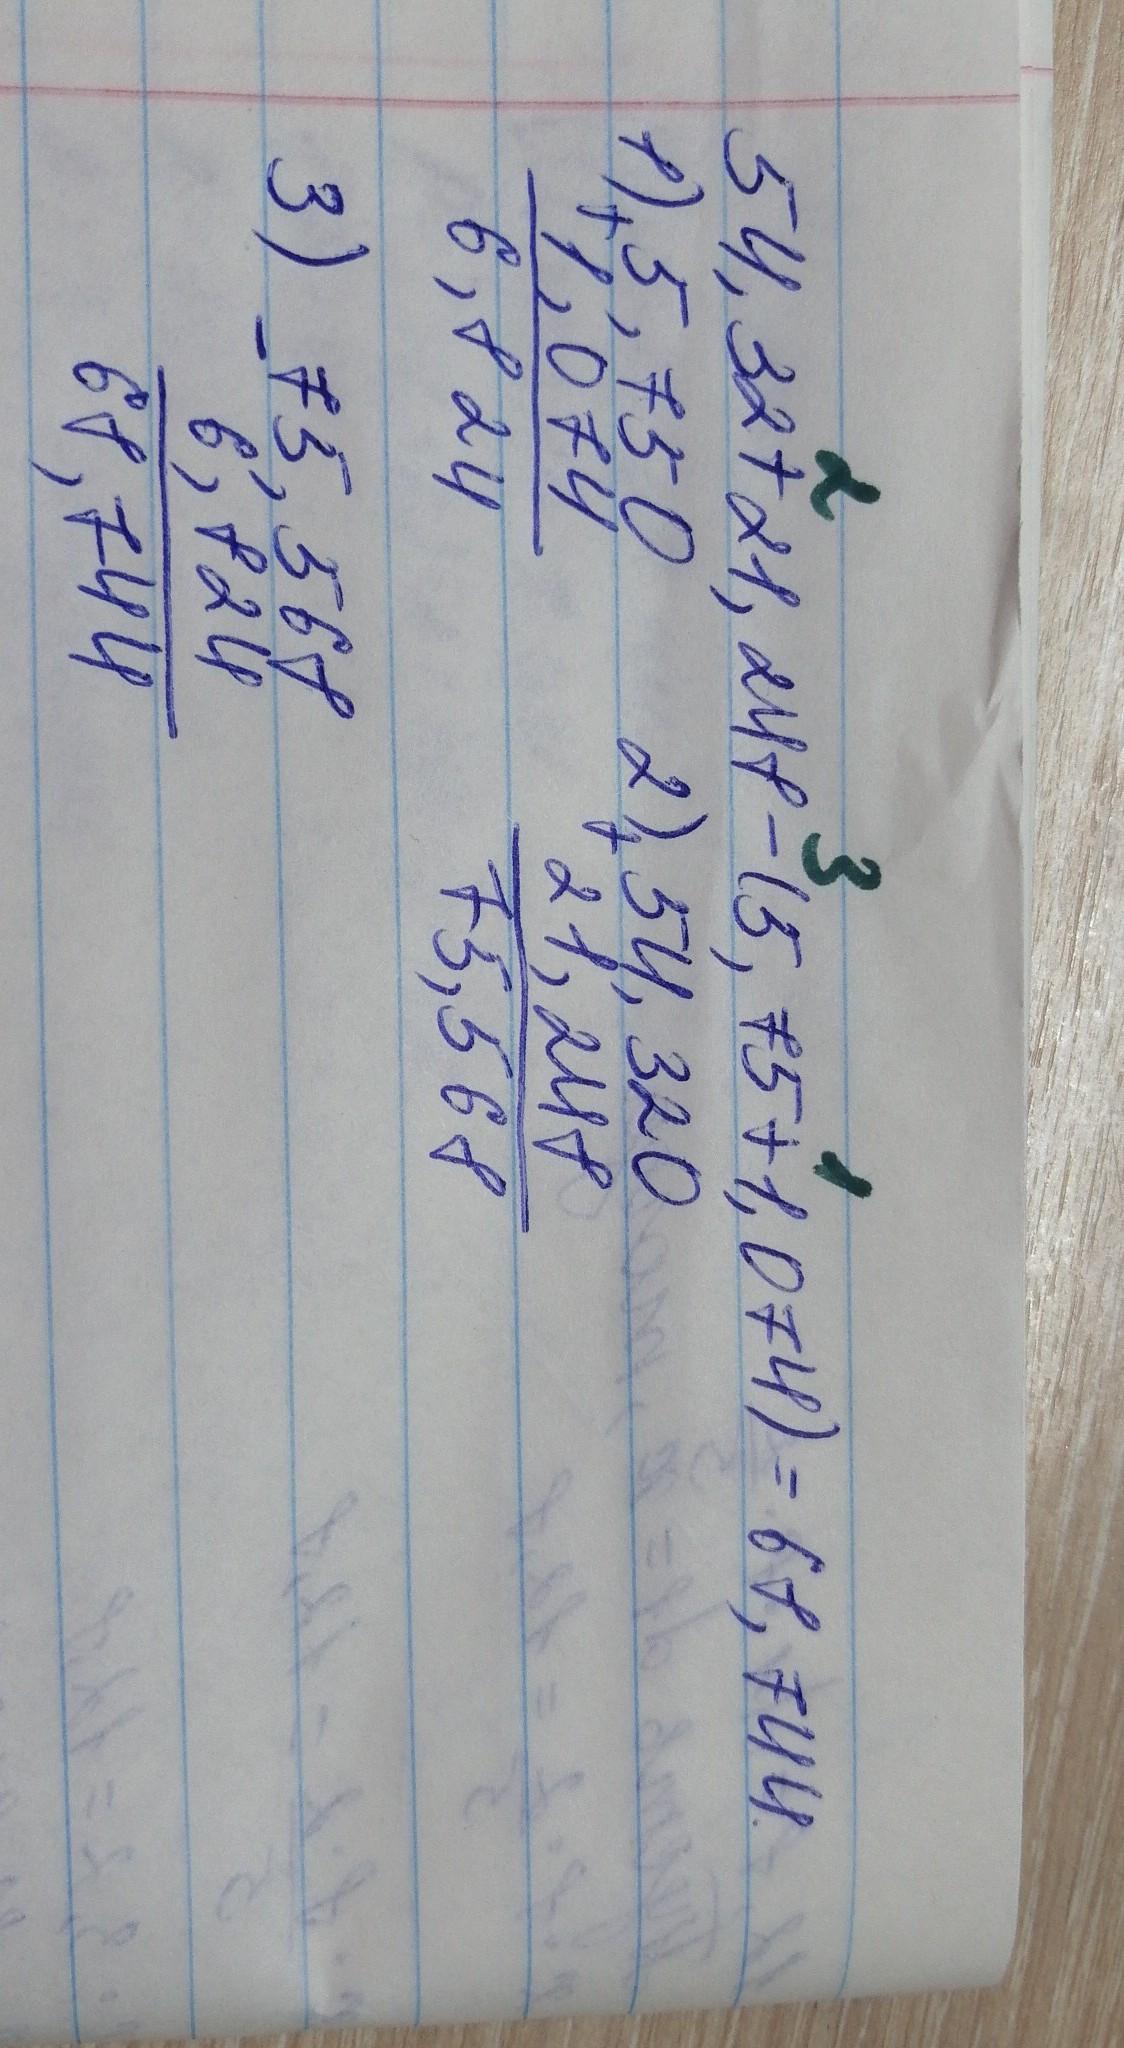 2 3 1
54,32+21,248-(5,75+1,074)=68,744
1) + 5,750 2) + 54,320
1,074 21,248
6,824 75,568
3) - 75,568
6,824
68,744